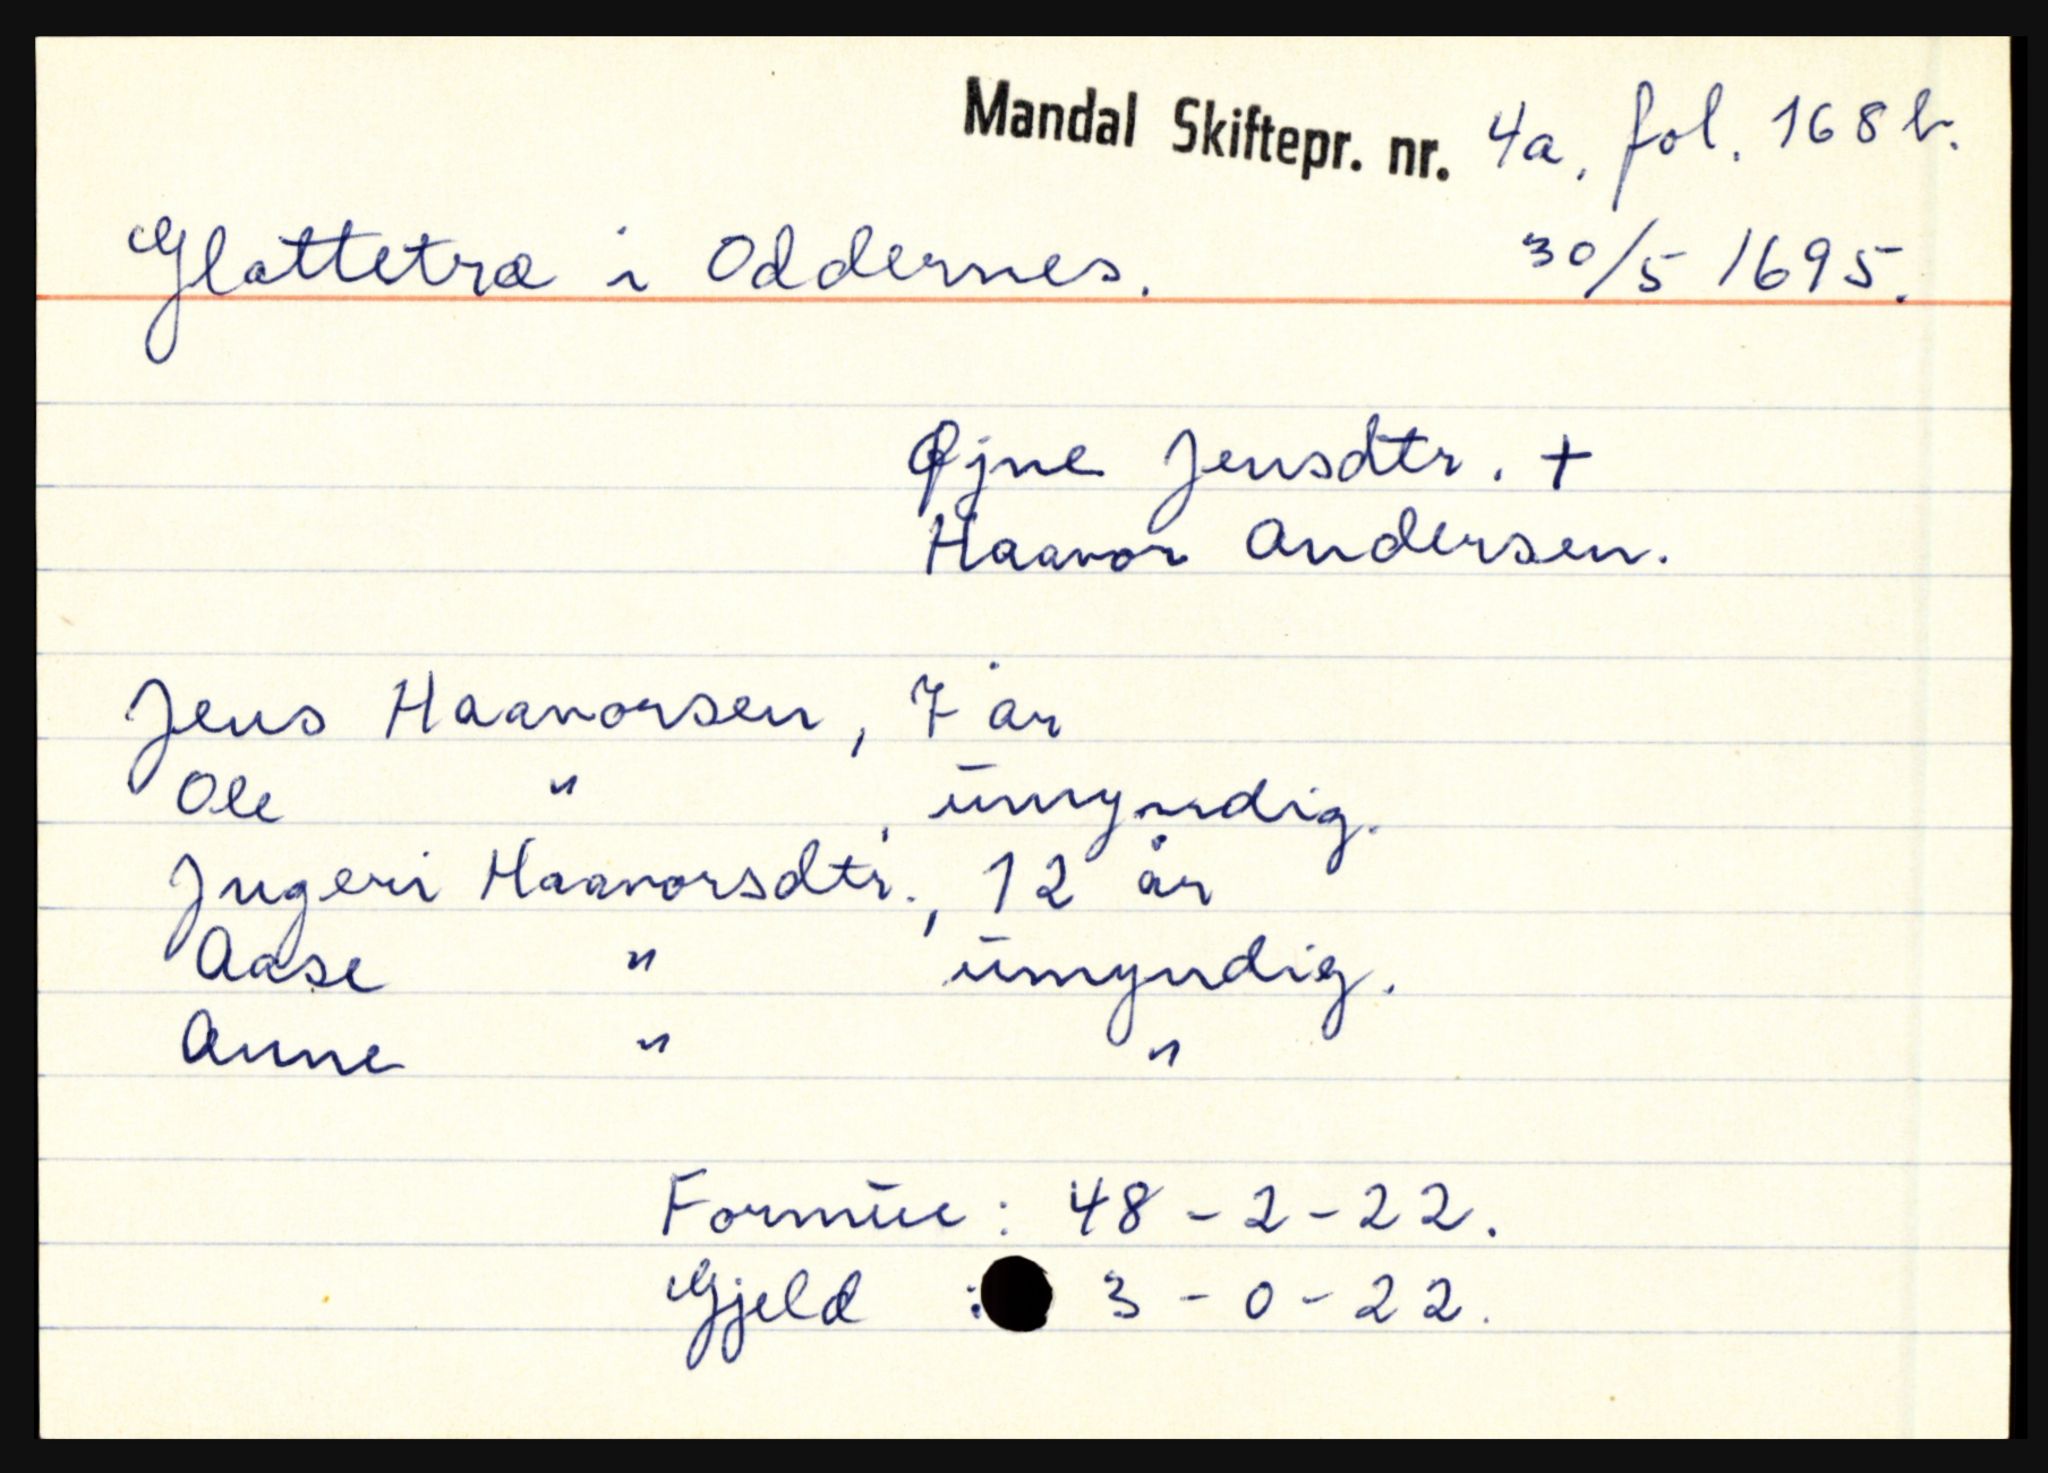 Mandal Skiftepr. nr. 4a, fol. 168 b.
Glattetra i Oddernes. 30/5 1695.
Øjne Jensdtr. +
Haavor Andersen.
Jens Haavorsen, 7 år
Ole " , umyndig.
Ingeri Haavorsdtr., 12 år
Aase " umyndig.
Anne " "
Formue: 48 - 2 - 22.
Gjeld : 3 - 0 - 22.